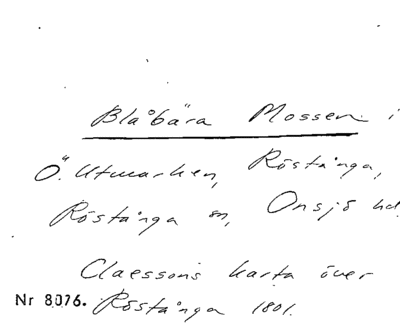 Blåbära Mossen i
Ö. Utmarken, Röstånga,
Röstånga sn, Onsjö hd
Claessons karta över
Nr 8076. Röstånga 1801.